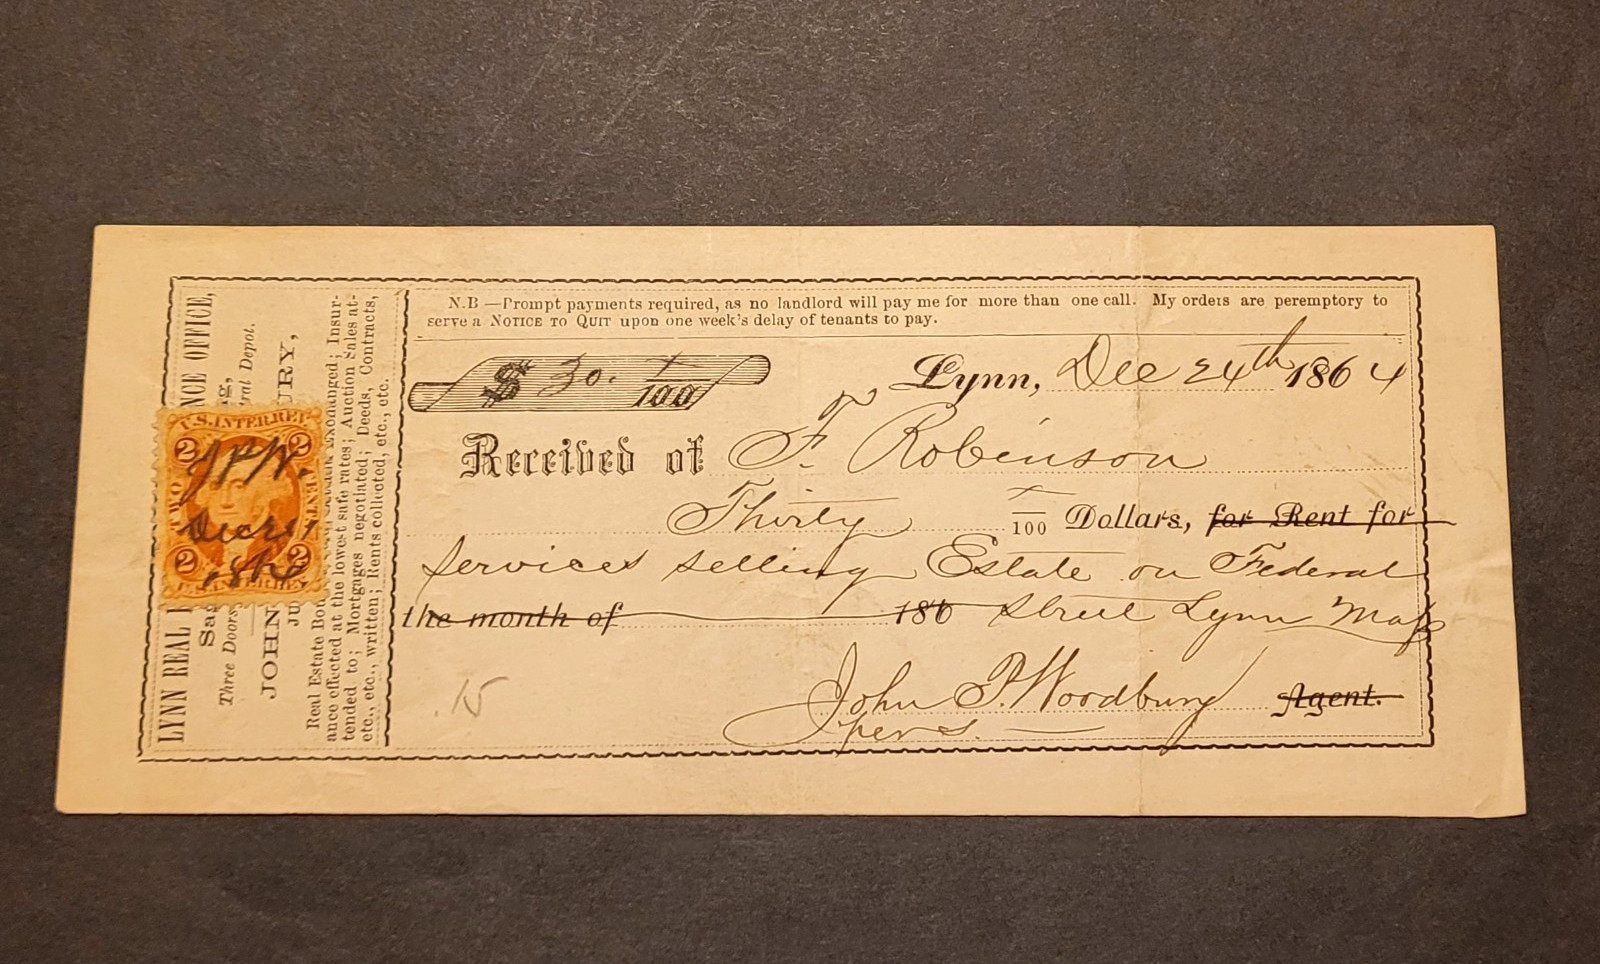 N.B —Prompt payments required, as no landlord will pay me for more than one call. My orders are peremptory to
serve a NOTICE TO QUIT upon one week's delay of tenants to pay.
$ 30. x/100
Lynn, Dec 24th 1864
Received of F. Robinson
Thirty x/100 Dollars, for Rent for
Services selling Estate on Federal
the month of 186 Street Lynn Mass
John P. Woodbury Agent.
per S.
15
LYNN REAL NCE OFFICE,
Three Doors Depot.
JOHN URY,
Real Estate changed; Insur-
ance effected at the lowest safe rates; Auction Sales at-
tended to; Mortgages negotiated; Deeds, Contracts,
etc., etc., written; Rents collected, etc., etc.
U.S. INTER. REV.
2 2
TWO CENTS
J P W.
2 2
U.S. INTER. REV.